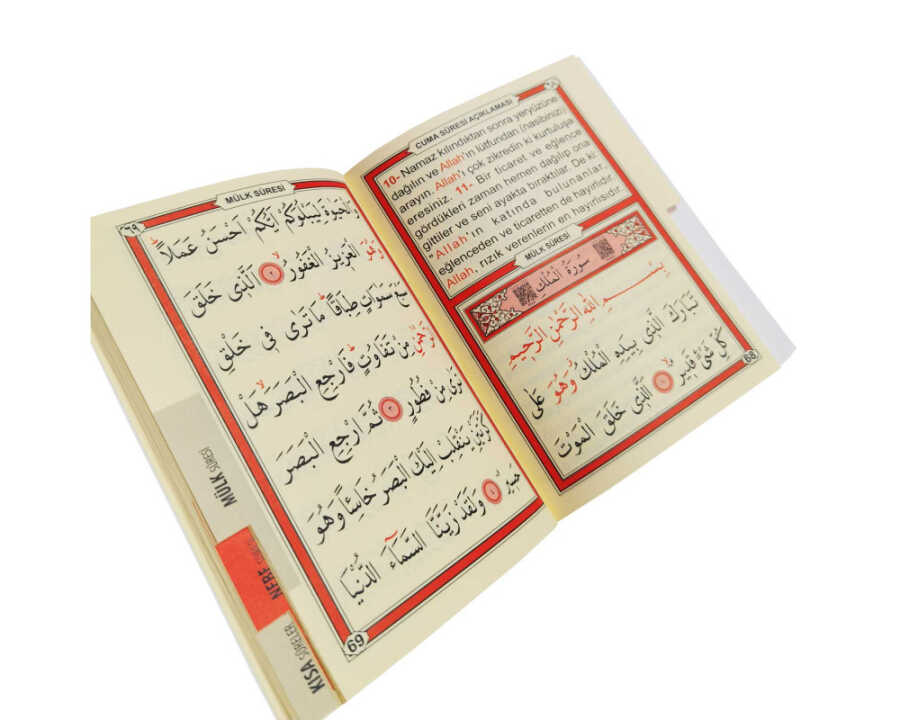 ٦٨
CUMA SÛRESİ AÇIKLAMASI
10- Namaz kılındıktan sonra yeryüzüne
dağılın ve Allah'ın lütfundan (nasibinizi)
arayın. Allah'ı çok zikredin ki kurtuluşa
eresiniz. 11- Bir ticaret ve eğlence
gördükleri zaman hemen dağılıp ona
gittiler ve seni ayakta bıraktılar. De ki:
"Allah'ın katında bulunanlar,
eğlenceden ve ticaretten de hayırlıdır.
Allah, rızık verenlerin en hayırlısıdır.
MÜLK SÛRESİ
سُورَةُ الْمُلْكِ
بِسْمِ اللهِ الرَّحْمٰنِ الرَّحِيمِ
تَبَارَكَ الَّذِى بِيَدِهِ الْمُلْكُ وَهُوَ عَلٰى
كُلِّ شَىْءٍ قَدِيرٌ ١ اَلَّذِى خَلَقَ الْمَوْتَ
68
٦٩
MÜLK SÛRESİ
وَالْحَيٰوةَ لِيَبْلُوَكُمْ اَيُّكُمْ اَحْسَنُ عَمَلًا
وَهُوَ الْعَزِيزُ الْغَفُورُ ٢ اَلَّذِى خَلَقَ
سَبْعَ سَمٰوَاتٍ طِبَاقًا مَا تَرٰى فِى خَلْقِ
الرَّحْمٰنِ مِنْ تَفَاوُتٍ فَارْجِعِ الْبَصَرَ هَلْ
تَرٰى مِنْ فُطُورٍ ٣ ثُمَّ ارْجِعِ الْبَصَرَ
كَرَّتَيْنِ يَنْقَلِبْ اِلَيْكَ الْبَصَرُ خَاسِئًا وَهُوَ
حَسِيرٌ ٤ وَلَقَدْ زَيَّنَّا السَّمَاءَ الدُّنْيَا
69
MÜLK SÛRESİ
NEBE SÛRESİ
KISA SÛRELER